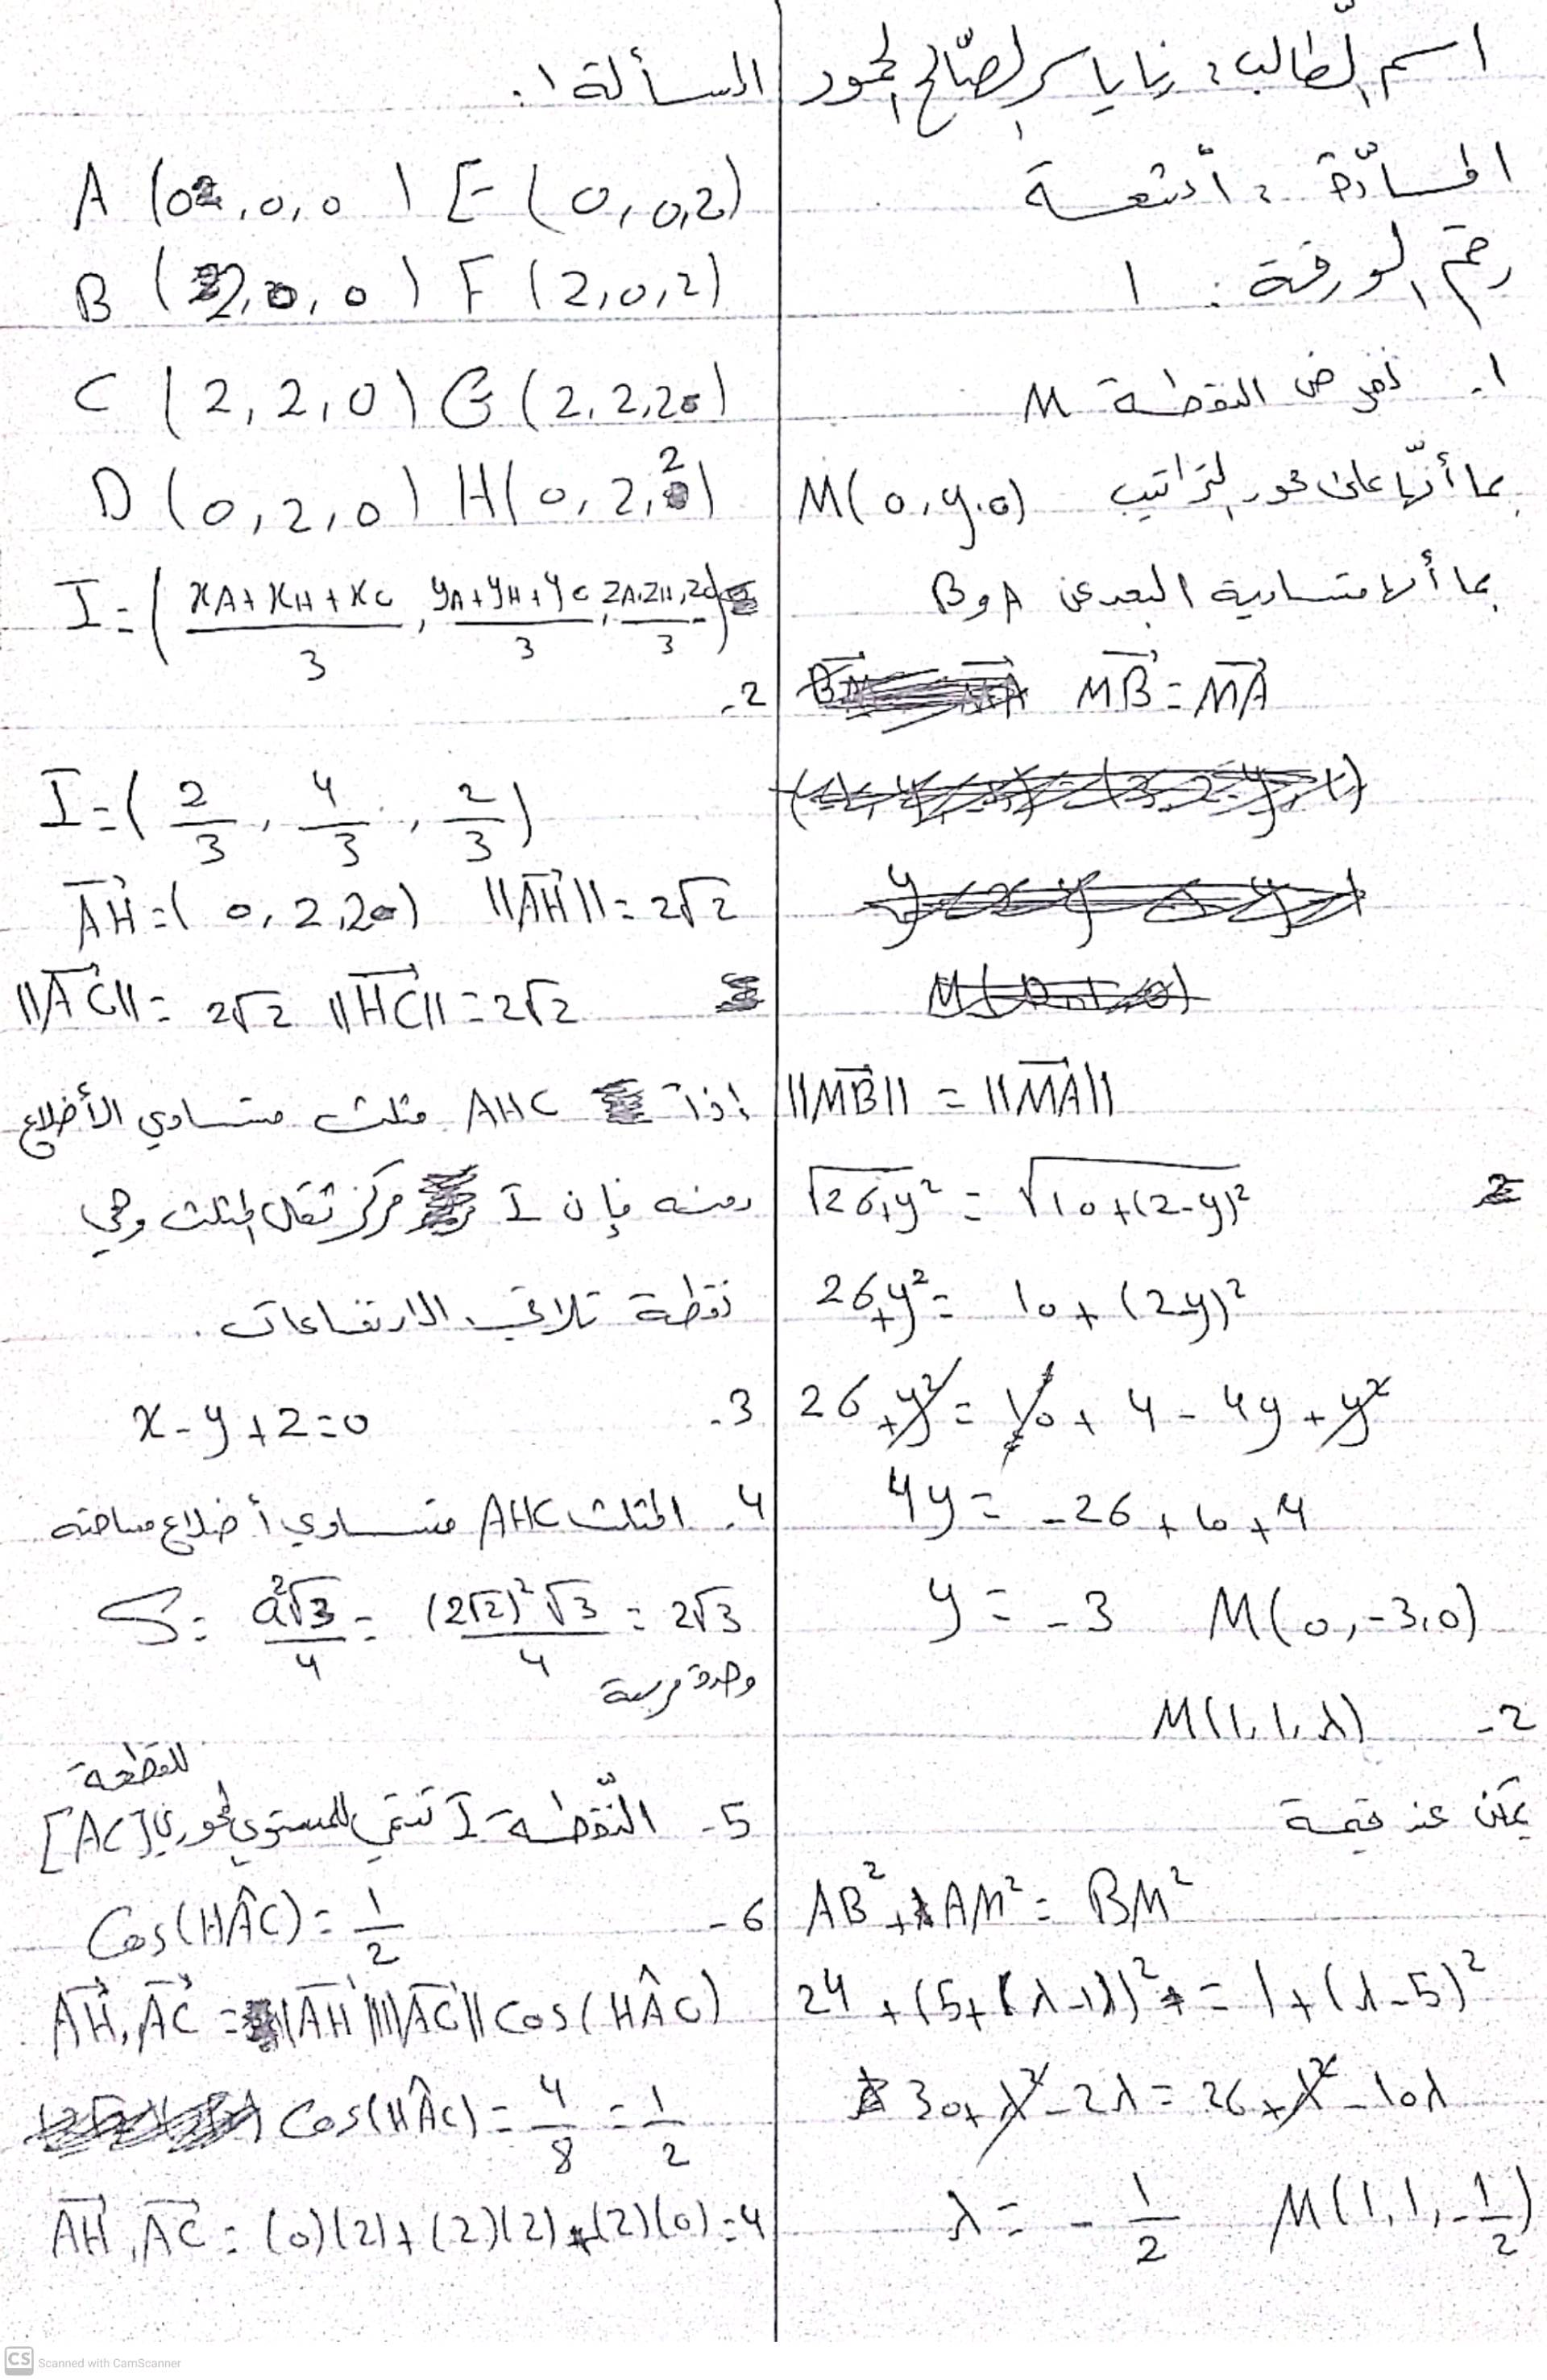 اسم الطالب: رنا ياسر الصّالح الحمود
المادّة: أشعة
رقم الورقة: 1
1- نفرض النقطة M
بما أنّها على محور التراتيب M(0,y,0)
بما أنها متساوية البعد عن A و B
MB = MA
||MB|| = ||MA||
√26+y² = √10+(2-y)²
26+y² = 10+(2-y)²
26+y² = 10+4-4y+y²
4y = -26+10+4
y = -3 M(0,-3,0)
2- M(1,1,λ)
يمكن عند قيمة
AB²+AM² = BM²
24+(5+(λ-1))² = 1+(λ-5)²
30+λ²-2λ = 26+λ²-10λ
λ = -1/2 M(1,1,-1/2)
المسألة 1.
A (0,0,0) E (0,0,2)
B (2,0,0) F (2,0,2)
C (2,2,0) G (2,2,2)
D (0,2,0) H(0,2,2)
I = (xA+xH+xC/3, yA+yH+yC/3, zA,zH,zC/3)
2-
I = (2/3, 4/3, 2/3)
AH = (0,2,2) ||AH|| = 2√2
||AC|| = 2√2 ||HC|| = 2√2
إذاً AHC مثلث متساوي الأضلاع
ومنه فإن I مركز ثقل المثلث وهي
نقطة تلاقي الارتفاعات.
3- x-y+2=0
4- المثلث AHC متساوي أضلاع مساحته
S = a²√3/4 = (2√2)²√3/4 = 2√3
وحدة مربعة
5- النّقطة I تنتمي للمستوي المحوري للقطعة [AC]
6- Cos(HÂC) = 1/2
AH.AC = ||AH||||AC|| cos(HÂC)
Cos(HÂC) = 4/8 = 1/2
AH.AC = (0)(2)+(2)(2)+(2)(0)=4
CS Scanned with CamScanner